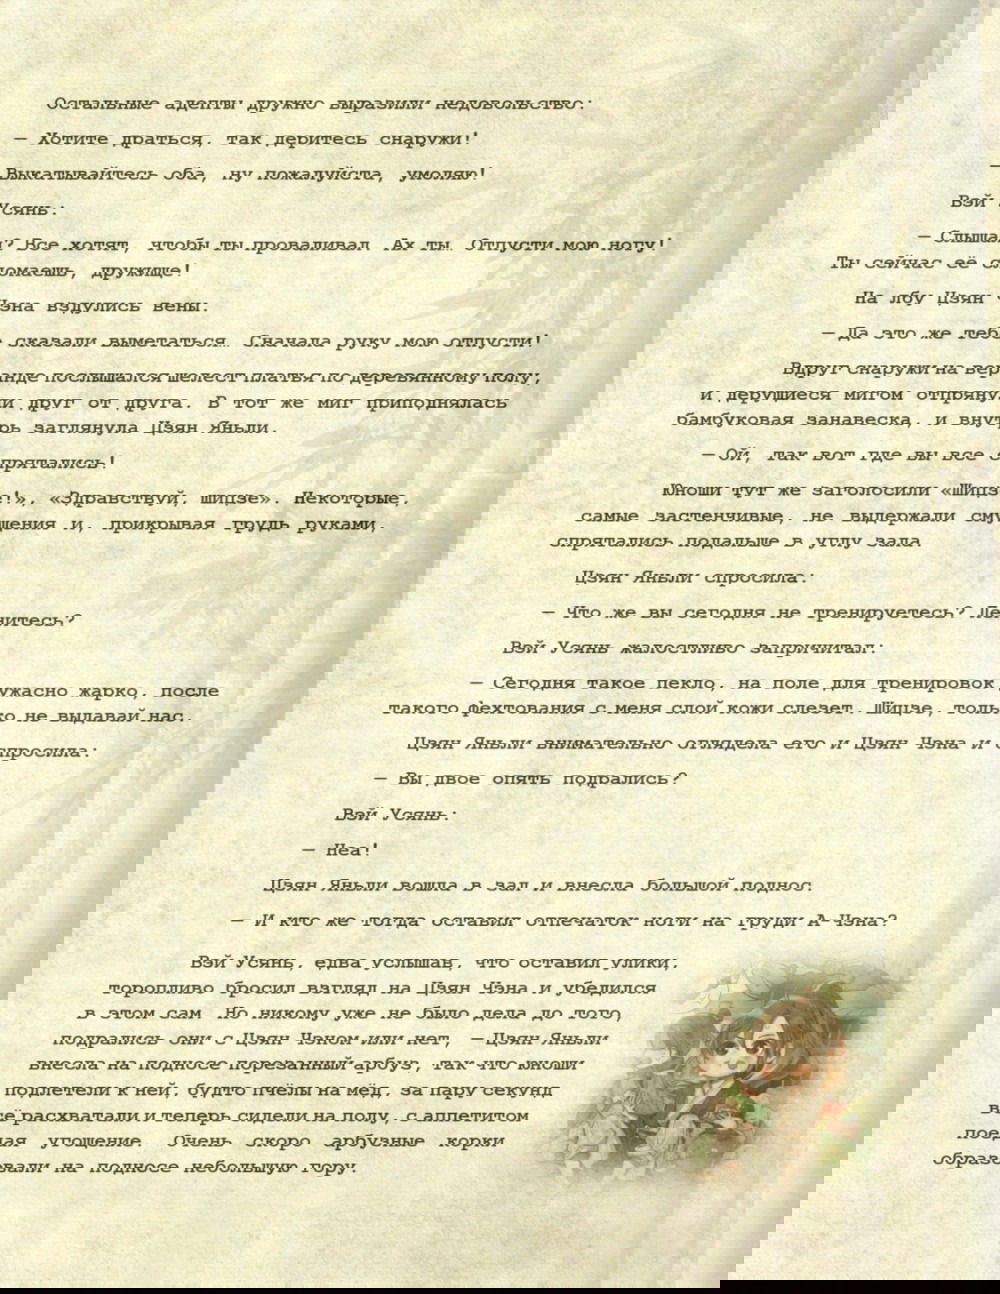 Остальные адепты дружно выразили недовольство:
— Хотите драться, так деритесь снаружи!
— Выкатывайтесь оба, ну пожалуйста, умоляю!
Вэй Усянь:
— Слышал? Все хотят, чтобы ты проваливал. Ах ты… Отпусти мою ногу!
Ты сейчас её сломаешь, дружище!
На лбу Цзян Чэна вздулись вены:
— Да это же тебе сказали выметаться… Сначала руку мою отпусти!
Вдруг снаружи на веранде послышался шелест платья по деревянному полу,
и дерущиеся мигом отпрянули друг от друга. В тот же миг приподнялась
бамбуковая занавеска, и внутрь заглянула Цзян Яньли.
— Ой, так вот где вы все спрятались!
Юноши тут же заголосили «Шицзе!», «Здравствуй, шицзе». Некоторые,
самые застенчивые, не выдержали смущения и, прикрывая грудь руками,
спрятались подальше в углу зала.
Цзян Яньли спросила:
— Что же вы сегодня не тренируетесь? Ленитесь?
Вэй Усянь жалостливо запричитал:
— Сегодня такое пекло, на поле для тренировок ужасно жарко, после
такого фехтования с меня слой кожи слезет. Шицзе, только не выдавай нас.
Цзян Яньли внимательно оглядела его и Цзян Чэна и спросила:
— Вы двое опять подрались?
Вэй Усянь:
— Неа!
Цзян Яньли вошла в зал и внесла большой поднос.
— И кто же тогда оставил отпечаток ноги на груди А-Чэна?
Вэй Усянь, едва услышав, что оставил улики,
торопливо бросил взгляд на Цзян Чэна и убедился
в этом сам. Но никому уже не было дела до того,
подрались они с Цзян Чэном или нет, — Цзян Яньли
внесла на подносе порезанный арбуз, так что юноши
подлетели к ней, будто пчёлы на мёд, за пару секунд
всё расхватали и теперь сидели на полу, с аппетитом
поедая угощение. Очень скоро арбузные корки
образовали на подносе небольшую гору.